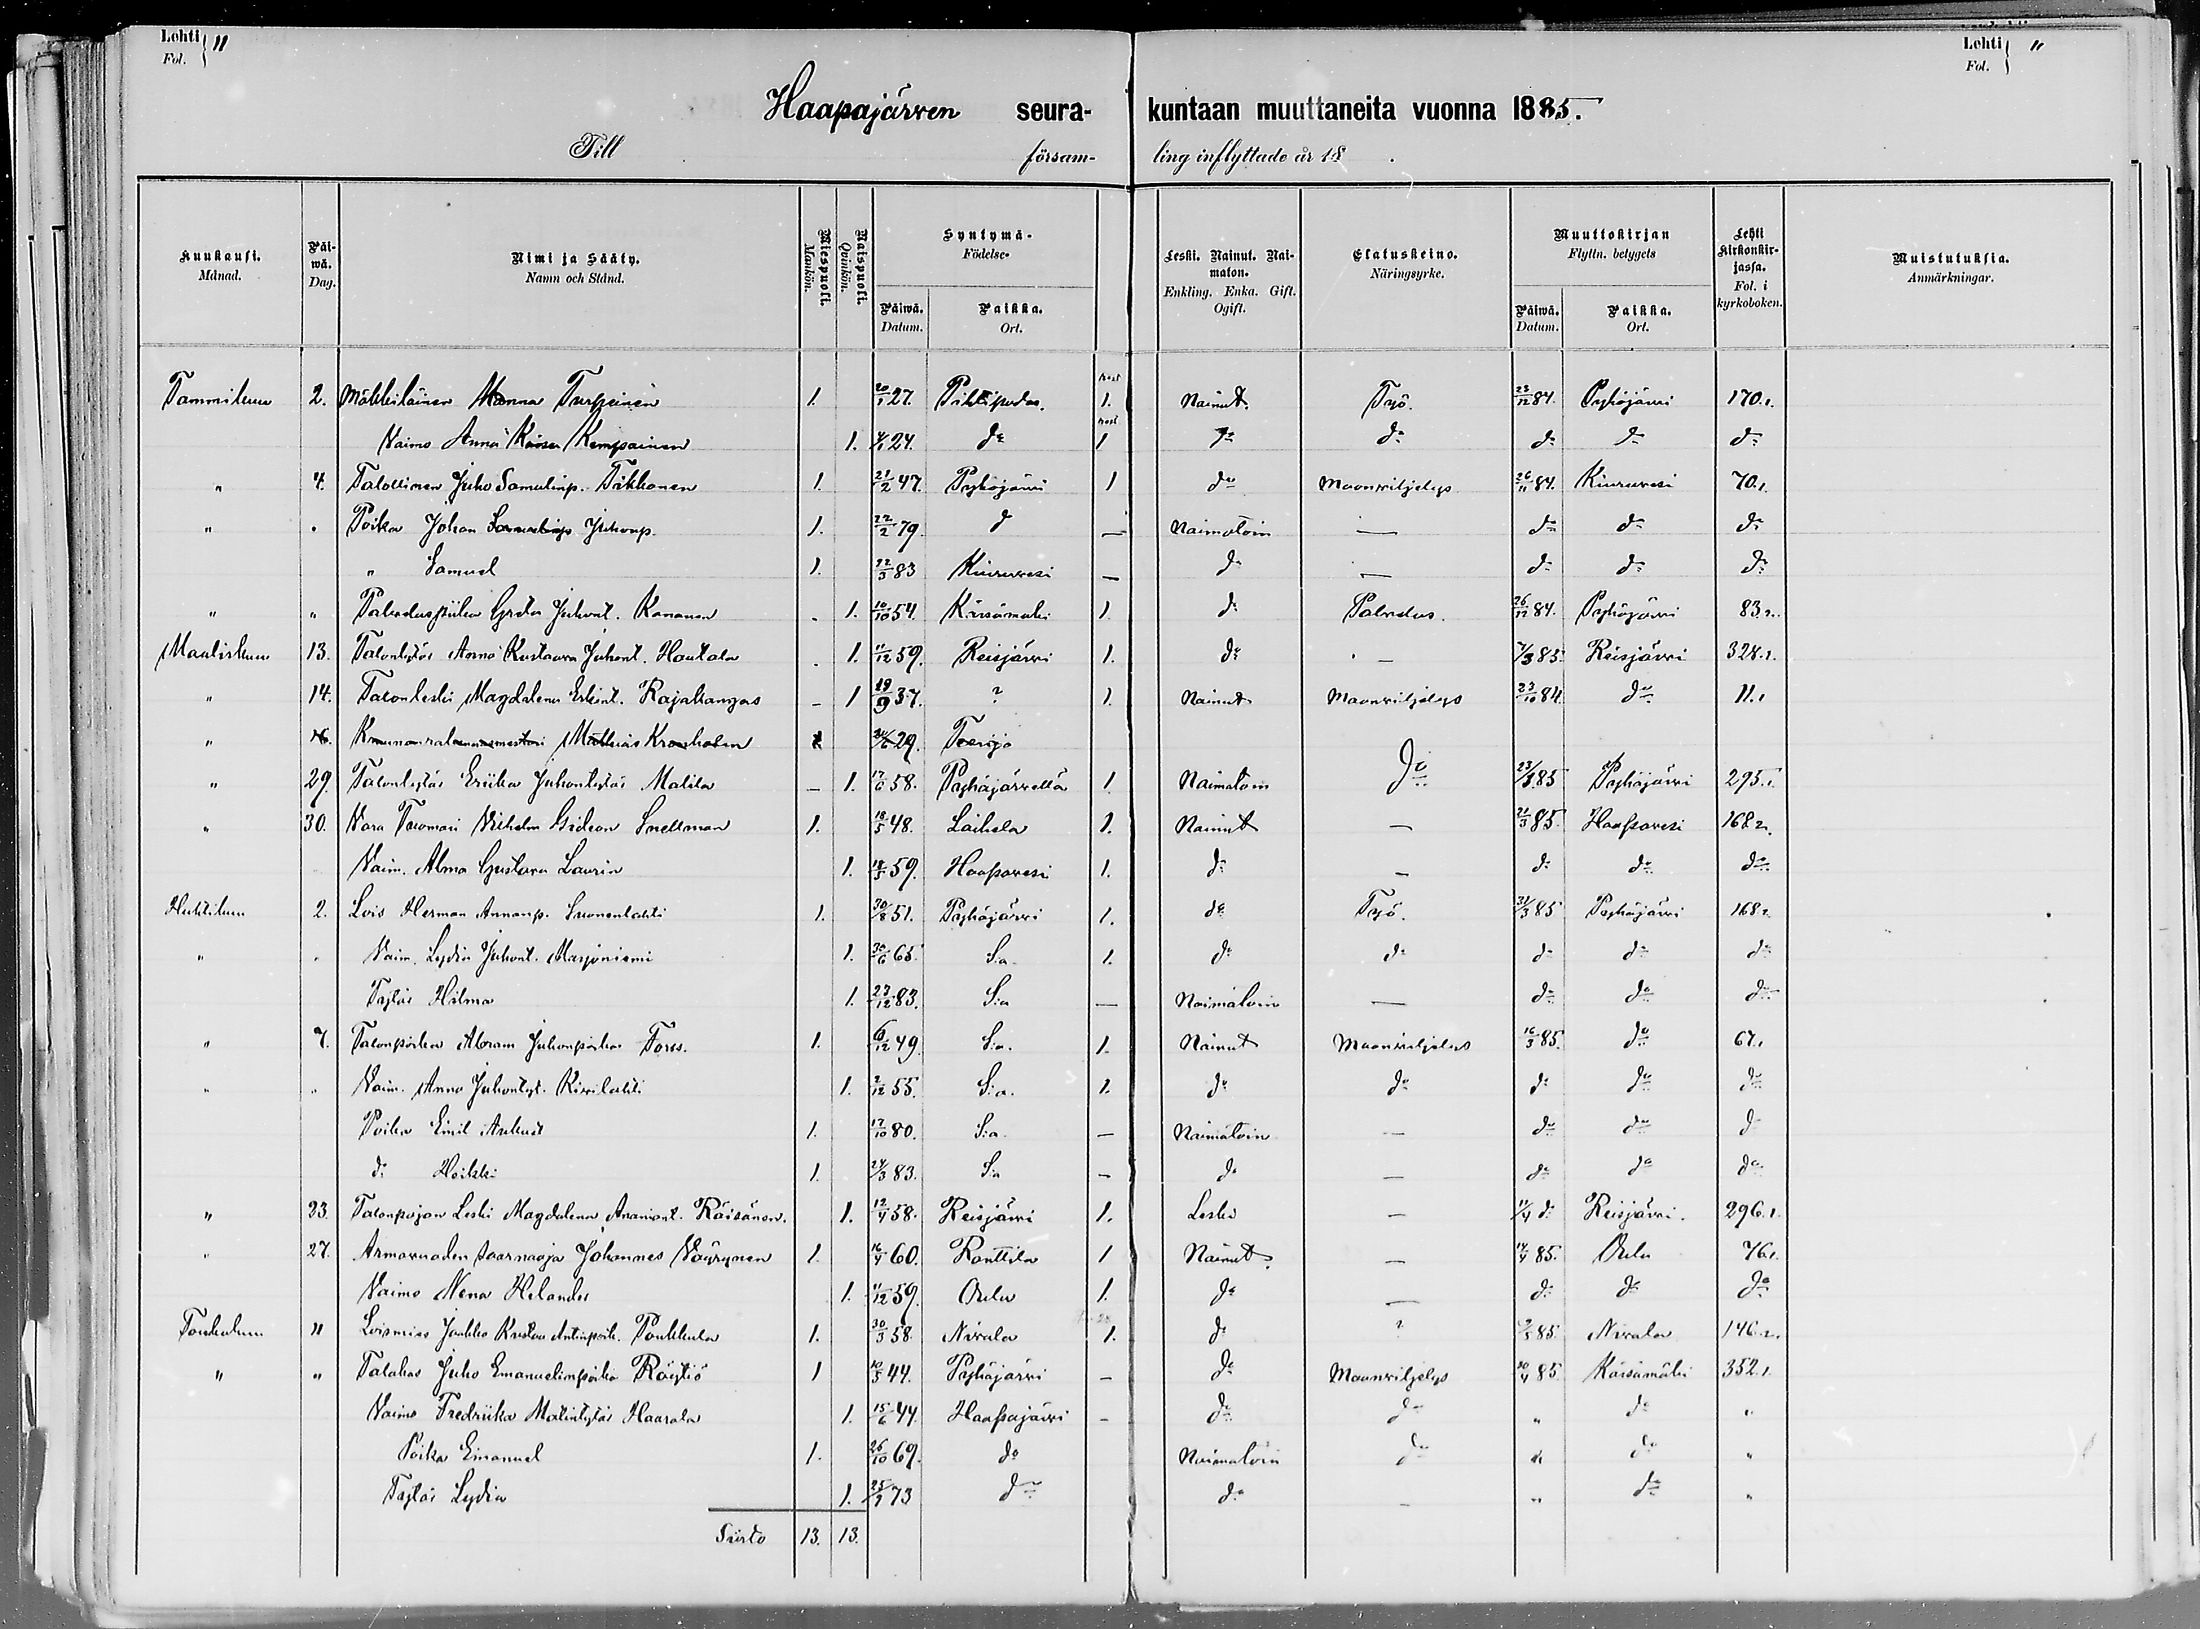 Lehti Fol. } 11
Lehti Fol. } "
Haapajärven seura- kuntaan muuttaneita vuonna 1885.
Till försam- ling inflyttade år 18 .
Kuukausi. Månad. | Päiwä. Dag. | Nimi ja Sääty. Namn och Stånd. | Miespuoli. Mankön. | Naispuoli. Qvinkön. | Syntymä- Födelse- Päiwä. Datum. Paikka. Ort. | Leski. Nainut. Naimaton. Enkling. Enka. Gift. Ogift. | Elatuskeino. Näringsyrke. | Muuttokirjan Flyttn. betygets Päiwä. Datum. Paikka. Ort. | Lehti Kirkonkirjassa. Fol. i kyrkoboken. | Muistutuksia. Anmärkningar.
Tammikuu 2. Turpeinen 1. 20/1 27. Pihtipudas. 1. Nainut. Työ. 23/12 84. Pyhäjärvi 170.1.
Vaimo Anna Kaisa Kemppainen 1. 24. do 1 do do do do do
" 4. Talollinen Juho Samulinp. Tikkanen 1. 21/2 47. Pyhäjärvi 1 do Maanviljelys 26/11 84. Kiuruvesi 70.1.
" " Poika Johan Juhonp. 1. 22/2 79. d — Naimatoin — do do do
" Samuel 1. 22/3 83 Kiuruvesi — do — do do do
" " Palveluspiika Greta Juhont. Kananen - 1. 10/10 54. Kärsämäki 1. do Palvelus. 26/12 84. Pyhäjärvi 83.2.
Maaliskuu 13. Talontytär Anna Kustaava Juhont. Hautala - 1. 11/12 59. Reisjärvi 1. do - 7/3 85. Reisjärvi 328.1.
" 14. Talonleski Magdalena Erkint. Rajakangas - 1 19/9 37. ? 1. Nainut Maanviljelys 23/10 84. do 11.1
" 16. Mathias Kronholm 29. Teerijo
" 29. Talontytär Eriika Juhontytär Malila - 1. 17/6 58. Pyhäjärvellä 1. Naimatoin do 23/3 85 Pyhäjärvi 295.1.
" 30. Vara Tuomari Vilhelm Gideon Snellman 1. 18/5 48. Laihela 1. Nainut — 21/3 85. Haapavesi 168.2.
Vaim. Alma Gustava Laurin 1. 18/5 59. Haapavesi 1. do — do do do
Huhtikuu 2. Lois Herman Annanp. Suonenlahti 1. 30/8 51. Pyhäjärvi 1. do Työ. 31/3 85 Pyhäjärvi 168.2
" " Vaim. Lydia Juhont. Marjoniemi 1. 30/6 65. S:a 1. do do do do do
Tytär Hilma 1. 23/12 83. S:a — Naimatoin — do do do
" 7. Talonpoika Abram Juhonpoika Forss. 1. 6/12 49. S:a. 1. Nainut Maanviljelys 16/3 85. do 67.1
" " Vaim. Anna Juhontyt. Kivilahti 1. 2/12 55. S:a. 1. do do do do do
Poika Emil 1. 17/10 80. S:a — Naimatoin — do do d
do Heikki 1. 24/3 83. S:a — do — do do do
" 23. Talonpojan Leski Magdalena Räisänen. 1. 12/4 58. Reisjärvi 1. Leski — 11/4 do Reisjärvi. 296.1.
" 27. Armovuoden saarnaaja Johannes Väyrynen 1. 16/4 60. Ranttila 1 Nainut — 14/4 85. Oulu 76.1.
Vaimo Helander 1. 11/12 59. Oulu 1. do — do do do
Toukokuu 11 Loismies Jaakko Kustaa Antinpoik. Pouhkula 1. 30/3 58. Nivala 1. do ? 85. Nivala 146.2.
" " Talokas Juho Emanuelinpoika Röytiö 1 10/5 44. Pyhäjärvi — do Maanviljelys 30/4 85. Kärsämäki 352.1.
Vaimo Fredriika Matintytär Haarala 1. 15/6 44. Haapajärvi — do do " do "
Poika Emanuel 1. 26/10 69. do Naimatoin do " do "
Tytär Lydia 1. 73 do do — " do "
Siirto 13. 13.